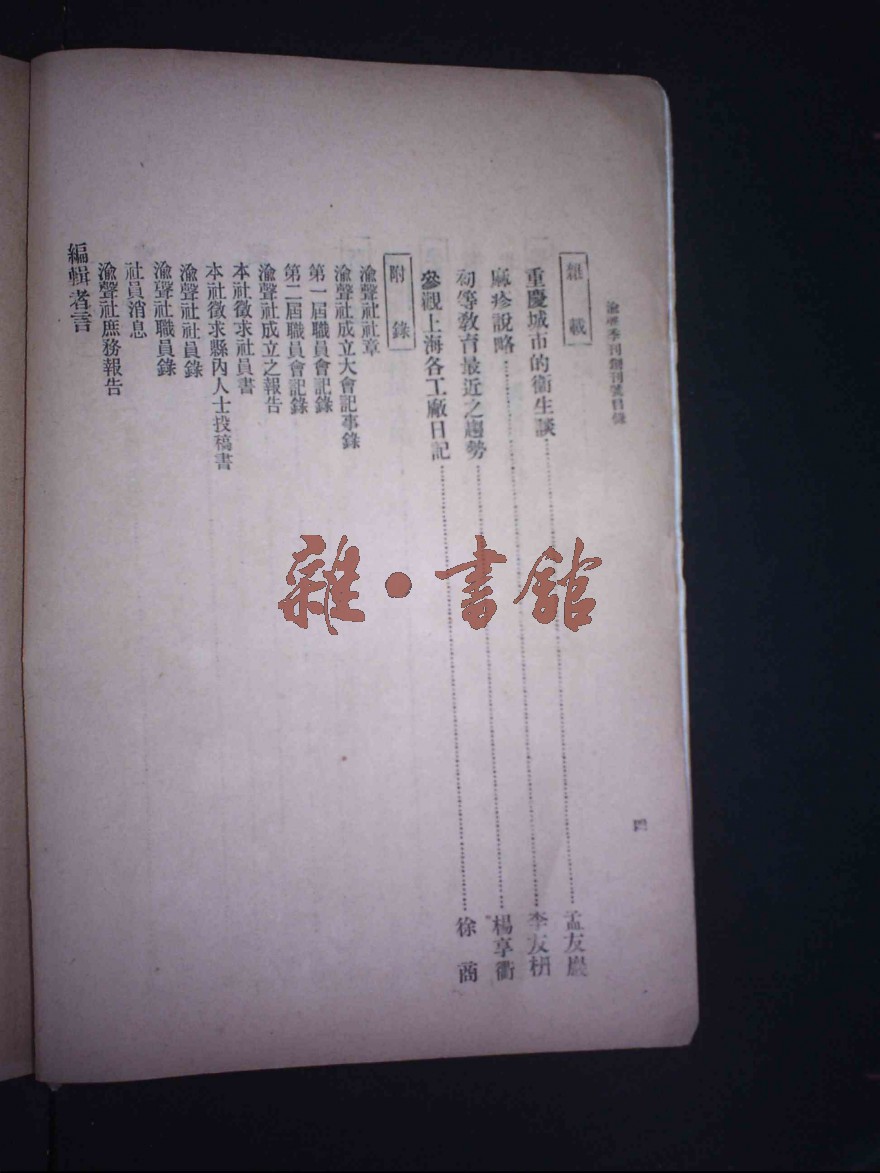 渝聲季刊創刊號目錄
雜載
重慶城市的衞生談 孟友巖
麻疹說略 李友枬
初等敎育最近之趨勢 楊享衢
參觀上海各工廠日記 徐商
附錄
渝聲社社章
渝聲社成立大會記事錄
第一屆職員會記錄
第二屆職員會記錄
渝聲社成立之報告
本社徵求社員書
本社徵求縣內人士投稿書
渝聲社社員錄
渝聲社職員錄
社員消息
渝聲社庶務報告
編輯者言
四
雜·書舘